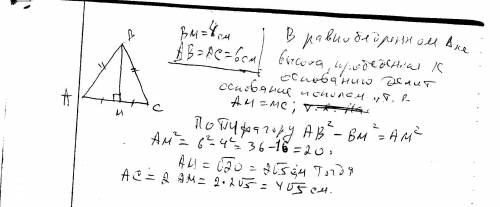 B
A
M
C
BM=4см
AB=AC=6см
В равнобедренном Δке
высота, проведённая к
основанию делит
основание пополам, т.е.
AM=MC;
По Пифагору AB²-BM²=AM²
AM²=6²-4²=36-16=20,
AM=√20=2√5см Тогда
AC=2AM=2·2√5=4√5 см.